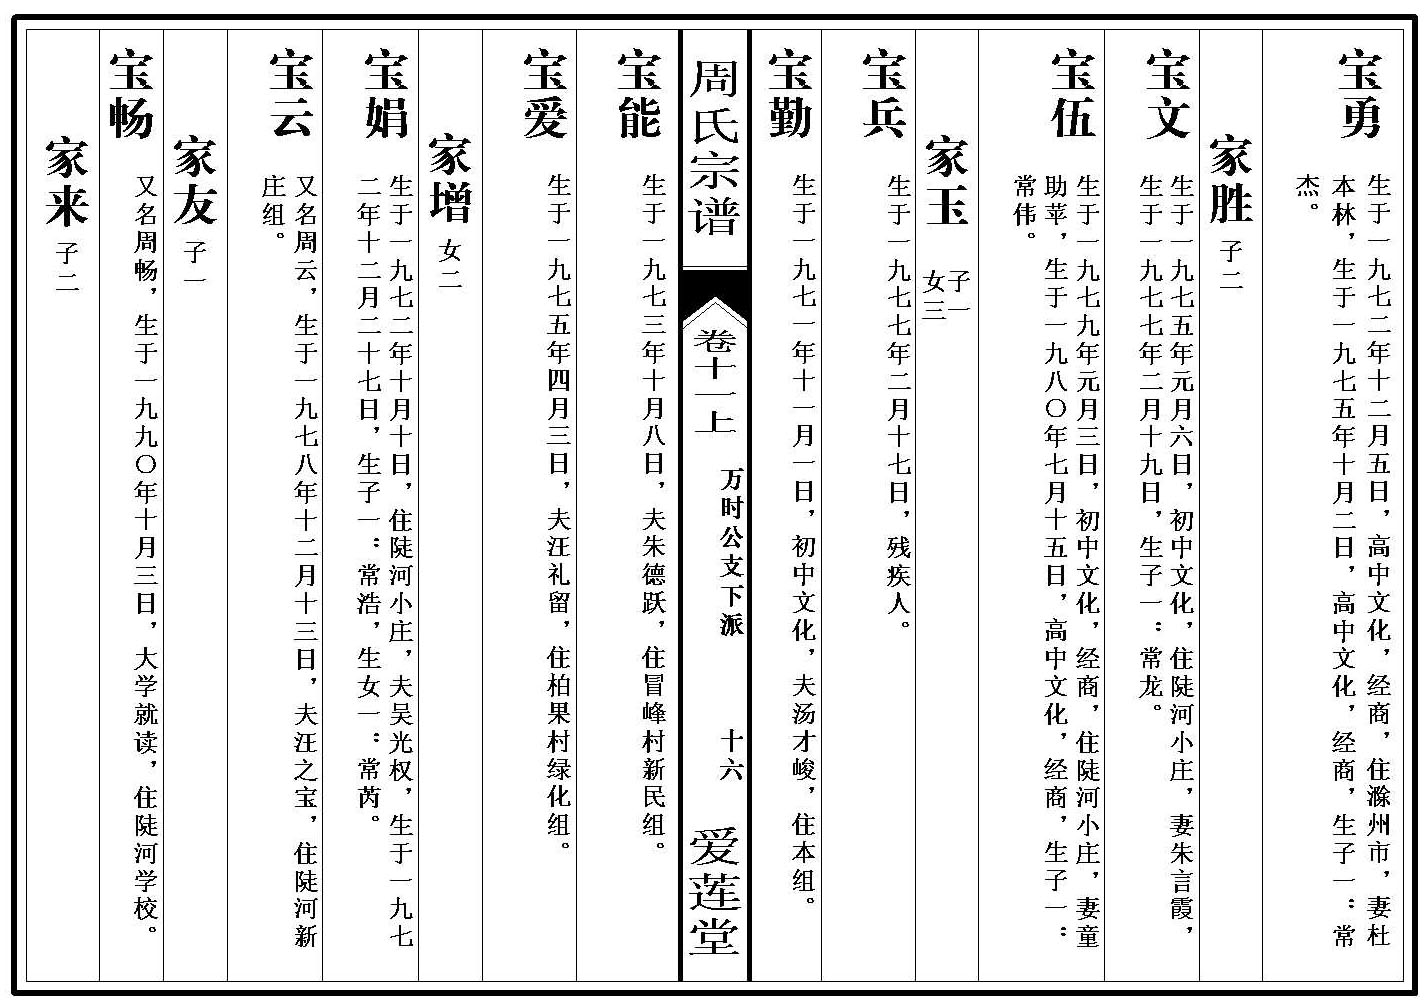 宝勇
生于一九七二年十二月五日，高中文化，经商，住滁州市，妻杜
本林，生于一九七五年十月二日，高中文化，经商，生子一：常
杰。
家胜 子二
宝文
生于一九七五年元月六日，初中文化，住陡河小庄，妻朱言霞，
生于一九七七年二月十九日，生子一：常龙。
宝伍
生于一九七九年元月三日，初中文化，经商，住陡河小庄，妻童
助苹，生于一九八〇年七月十五日，高中文化，经商，生子一：
常伟。
家玉
子一
女三
宝兵
生于一九七七年二月十七日，残疾人。
宝勤
生于一九七一年十一月一日，初中文化，夫汤才峻，住本组。
周氏宗谱
卷十一上
万时公支下派
十六
爱莲堂
宝能
生于一九七三年十月八日，夫朱德跃，住冒峰村新民组。
宝爱
生于一九七五年四月三日，夫汪礼留，住柏果村绿化组。
家增 女二
宝娟
生于一九七二年十月十日，住陡河小庄，夫吴光权，生于一九七
二年十二月二十七日，生子一：常浩，生女一：常芮。
宝云
又名周云，生于一九七八年十二月十三日，夫汪之宝，住陡河新
庄组。
家友 子一
宝畅
又名周畅，生于一九九〇年十月三日，大学就读，住陡河学校。
家来 子二